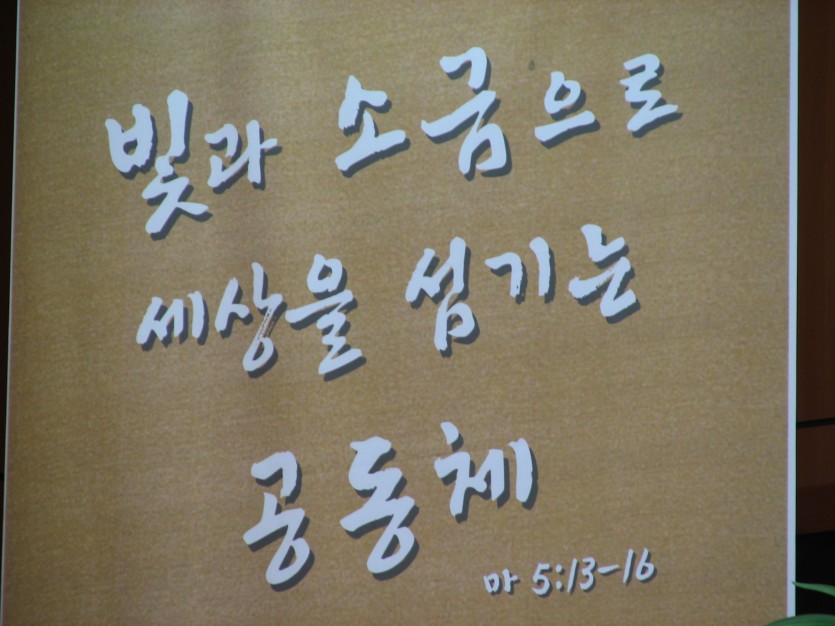 빛과 소금으로
세상을 섬기는
공동체
마 5:13-16